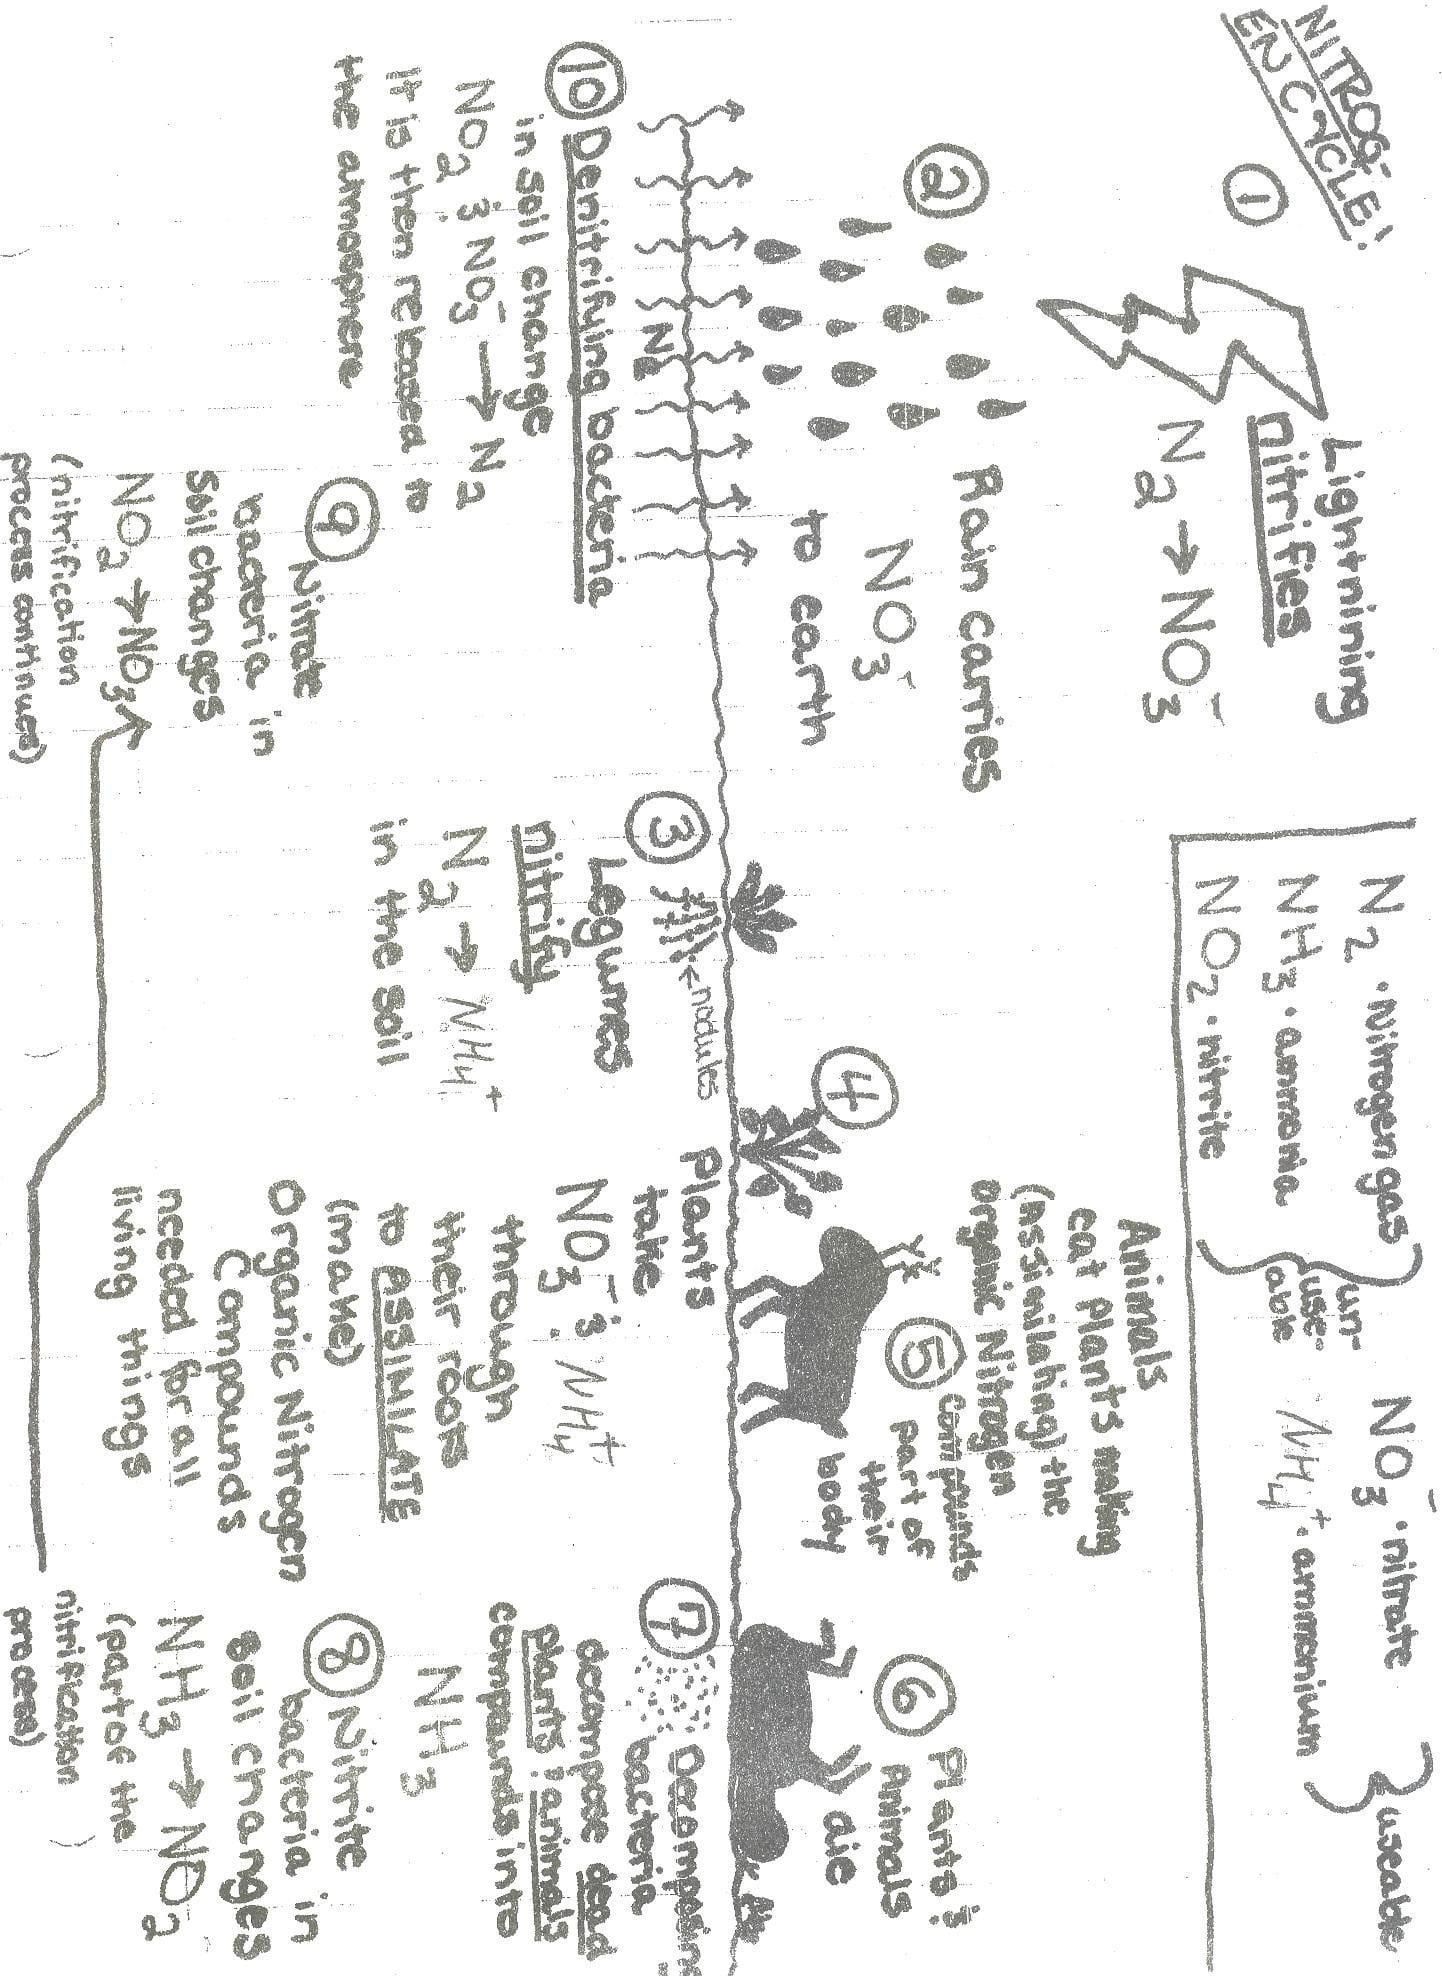 NITROG-
EN CYCLE!
1
Lightnining
nitrifies
N2 → NO3-
N2 · Nitrogen gas
NH3 · ammonia
NO2 · nitrite
un-
use-
able
NO3- · nitrate
NH4+ · ammonium
useable
2
Rain carries
NO3-
to earth
3
nodules
Legumes
nitrify
N2 → NH4+
in the soil
4
Plants
take
NO3- & NH4+
through
their roots
to ASSIMILATE
(make)
Organic Nitrogen
Compounds
needed for all
living things
Animals
eat plants making
(assimilating) the
organic Nitrogen
5 compounds
part of
their
body
6 Plants &
Animals
die
7
Decomposing
bacteria
decompose dead
plants & animals
compounds into
NH3
8 Nitrite
bacteria in
soil changes
NH3 → NO2
(part of the
nitrification
process)
9 Nitrate
bacteria in
soil changes
NO2 → NO3-
(nitrification
process continues)
N2
10 Denitrifying bacteria
in soil change
NO2 & NO3- → N2
It is then released to
the atmosphere